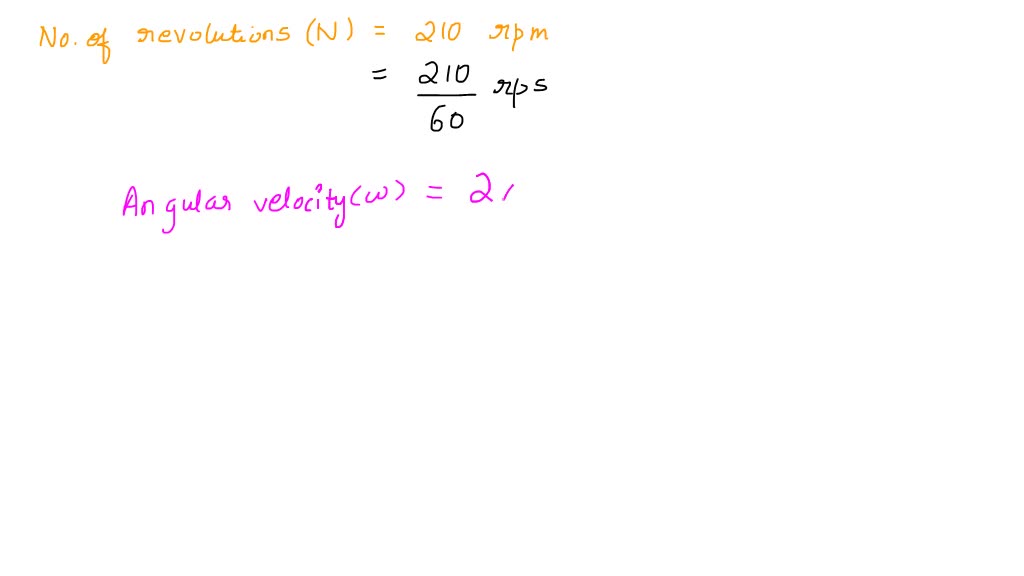 No. of revolutions (N) = 210 rpm
= 210/60 rps
Angular velocity (ω) = 2